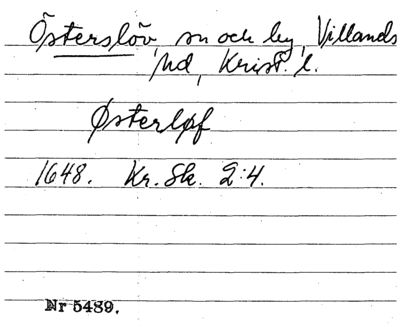 Österslöv, sn och by, Villands
hd, Krist. l.
Østerløf
1648. Kr. Sk. 2:4.
Nr 5489.